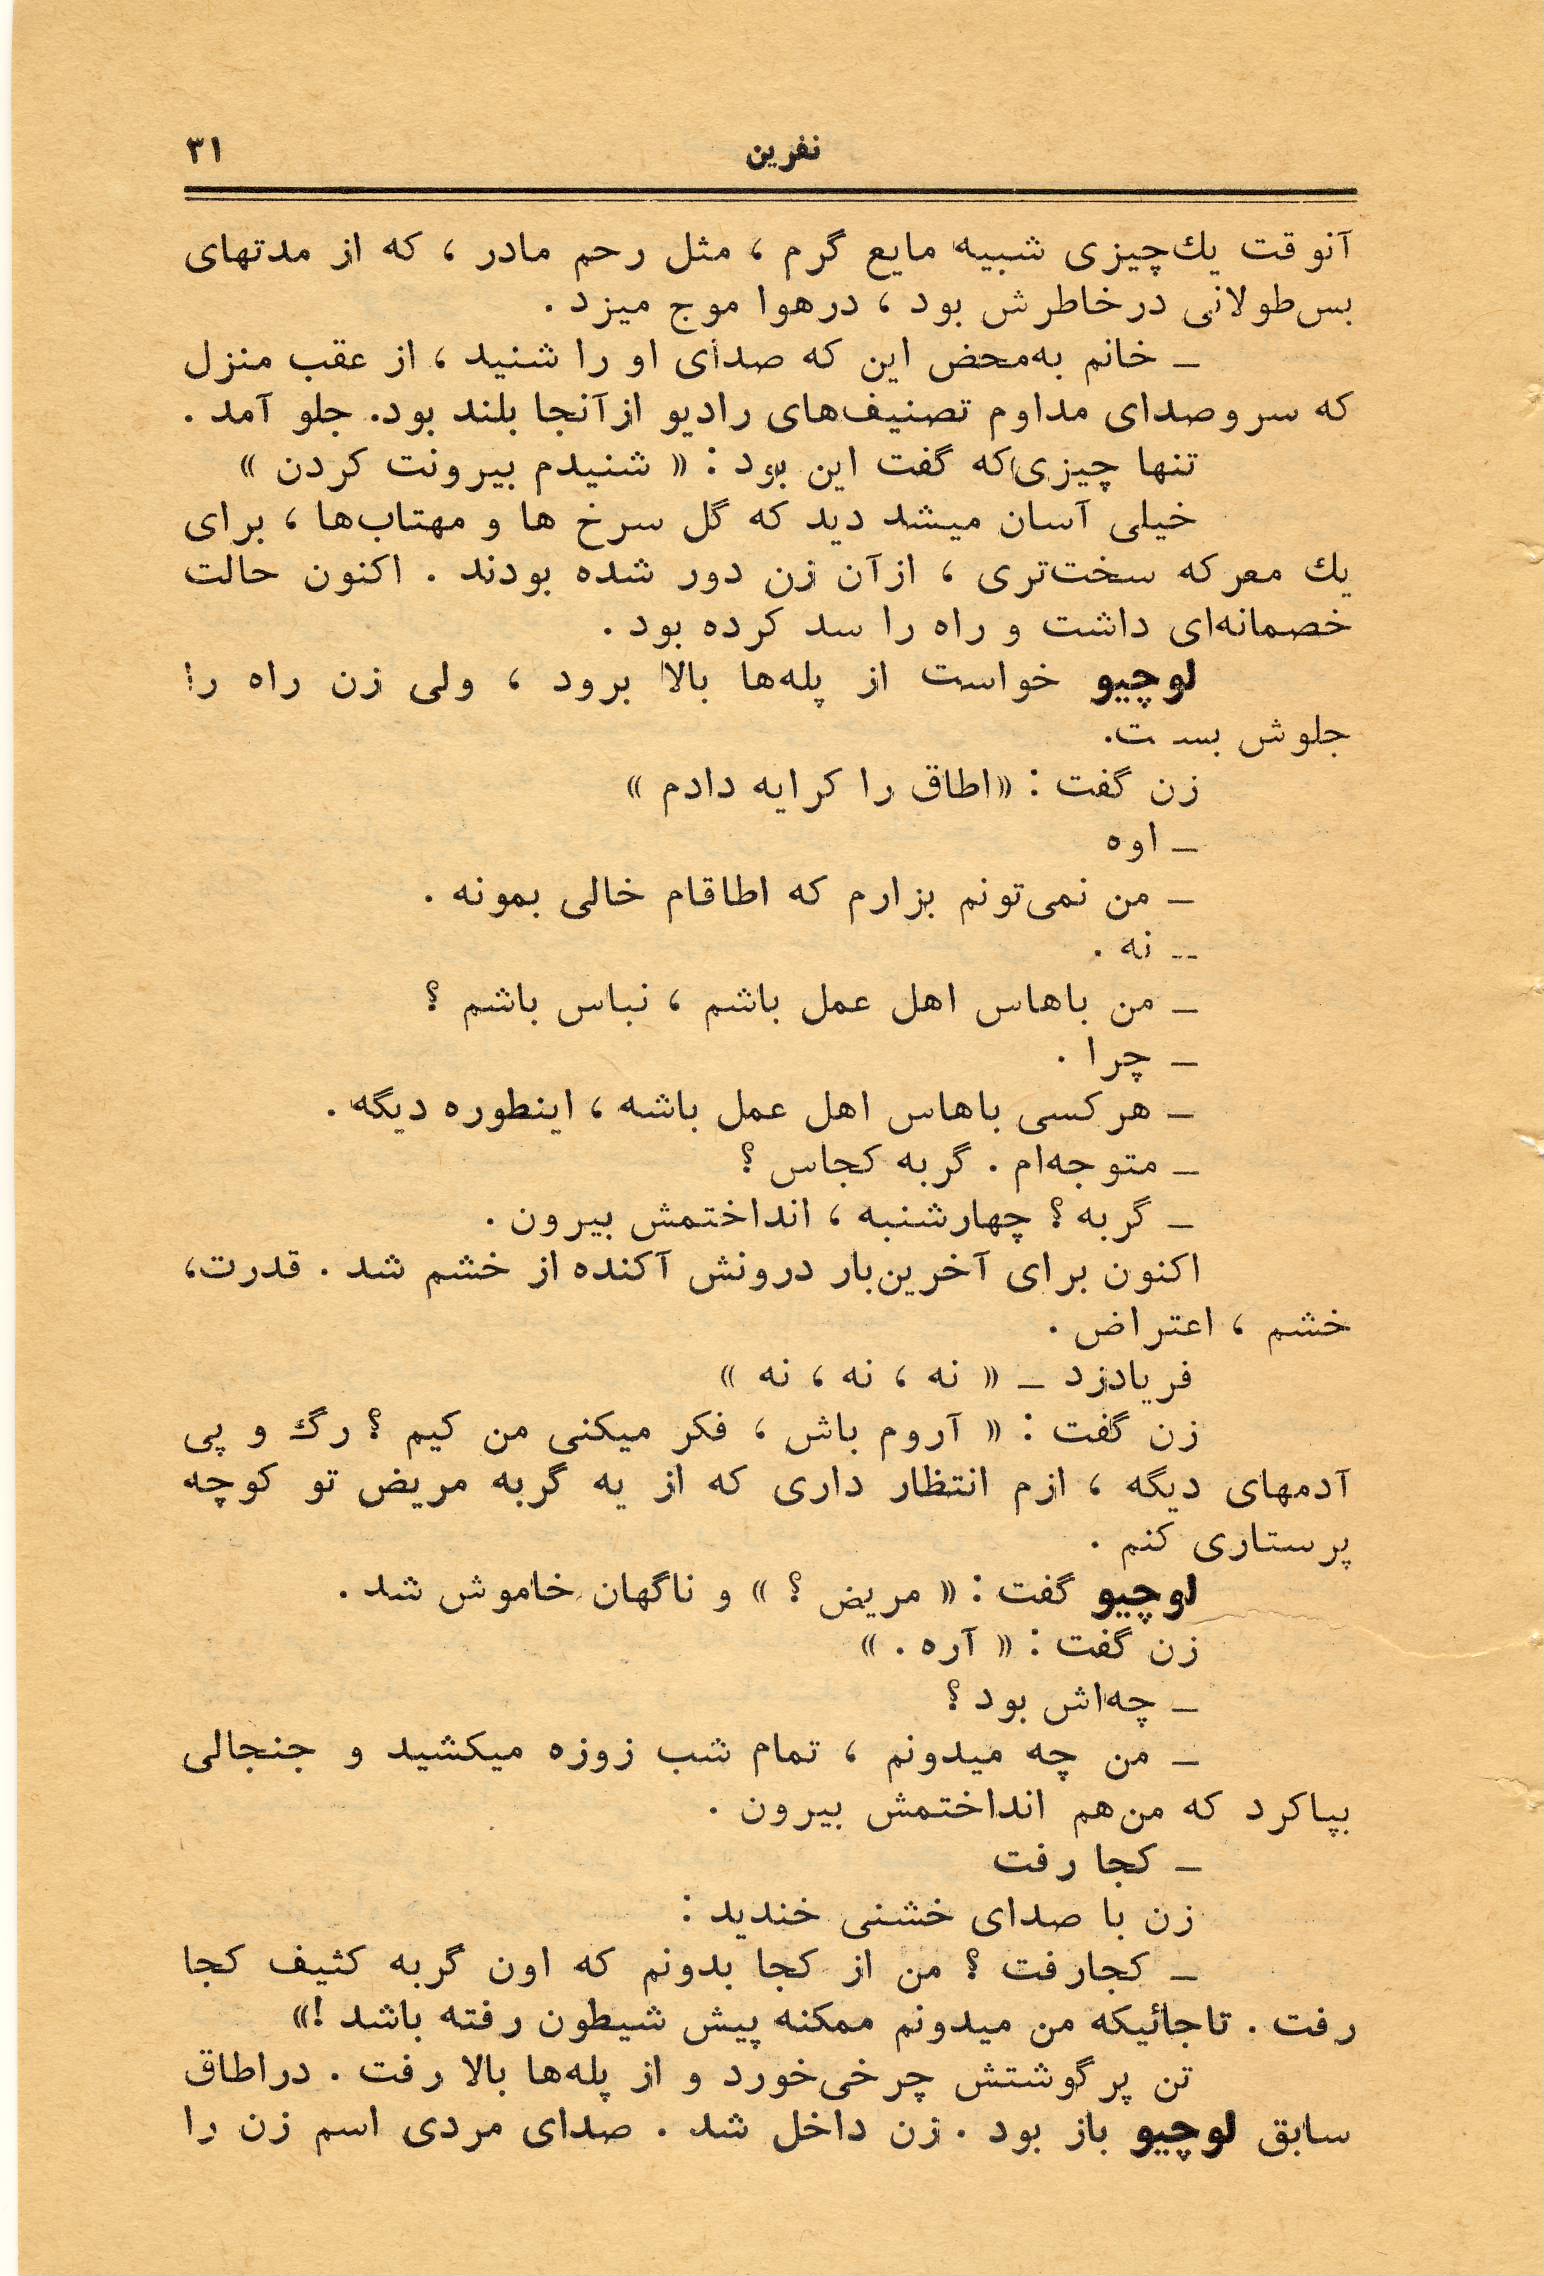 نفرین ۳۱
آنوقت یك‌چیزی شبیه مایع گرم ، مثل رحم مادر ، که از مدتهای
بس‌طولانی درخاطرش بود ، درهوا موج میزد .
ــ خانم به‌محض این که صدای او را شنید ، از عقب منزل
که سروصدای مداوم تصنیف‌های رادیو ازآنجا بلند بود. جلو آمد .
تنها چیزی‌که گفت این بود : « شنیدم بیرونت کردن »
خیلی آسان میشد دید که گل سرخ ها و مهتاب‌ها ، برای
یك معرکه سخت‌تری ، ازآن زن دور شده بودند . اکنون حالت
خصمانه‌ای داشت و راه را سد کرده بود .
لوچیو خواست از پله‌ها بالا برود ، ولی زن راه را
جلوش بست.
زن گفت : «اطاق را کرایه دادم »
ــ اوه
ــ من نمی‌تونم بزارم که اطاقام خالی بمونه .
ــ نه .
ــ من باهاس اهل عمل باشم ، نباس باشم ؟
ــ چرا .
ــ هرکسی باهاس اهل عمل باشه ، اینطوره دیگه .
ــ متوجه‌ام . گربه کجاس ؟
ــ گربه ؟ چهارشنبه ، انداختمش بیرون .
اکنون برای آخرین‌بار درونش آکنده از خشم شد . قدرت،
خشم ، اعتراض .
فریادزد ــ « نه ، نه ، نه »
زن گفت : « آروم باش ، فکر میکنی من کیم ؟ رگ و پی
آدمهای دیگه ، ازم انتظار داری که از یه گربه مریض تو کوچه
پرستاری کنم .
لوچیو گفت : « مریض ؟ » و ناگهان خاموش شد .
زن گفت : « آره . »
ــ چه‌اش بود ؟
ــ من چه میدونم ، تمام شب زوزه میکشید و جنجالی
بپاکرد که من‌هم انداختمش بیرون .
ــ کجا رفت
زن با صدای خشنی خندید :
ــ کجارفت ؟ من از کجا بدونم که اون گربه کثیف کجا
رفت . تاجائیکه من میدونم ممکنه پیش شیطون رفته باشد !»
تن پرگوشتش چرخی‌خورد و از پله‌ها بالا رفت . دراطاق
سابق لوچیو باز بود . زن داخل شد . صدای مردی اسم زن را